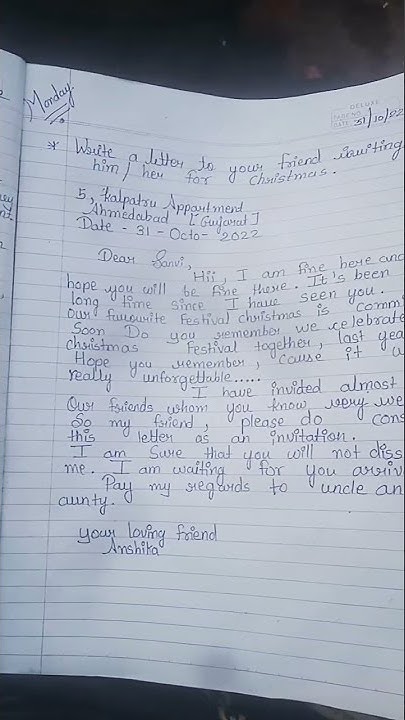 Monday
DELUXE
PAGE NO.
DATE: 31/10/22
* Write a letter to your friend inviting
him/her for christmas.
5, Kalpatru Appartment
Ahmedabad [Gujarat]
Date - 31 - Octo - 2022
Dear Sanvi,
Hii, I am fine here and
hope you will be fine there. It's been
long time since I have seen you.
Our favourite Festival christmas is comm
Soon Do you remember we celebrate
christmas Festival together, last yea
Hope you remember, cause it w
really unforgettable.....
I have invited almost
Our friends whom you know very we
So my friend, please do cons
this letter as an invitation.
I am Sure that you will not diss
me. I am waiting for you arriv
Pay my regards to uncle an
aunty.
your loving friend
Anshika